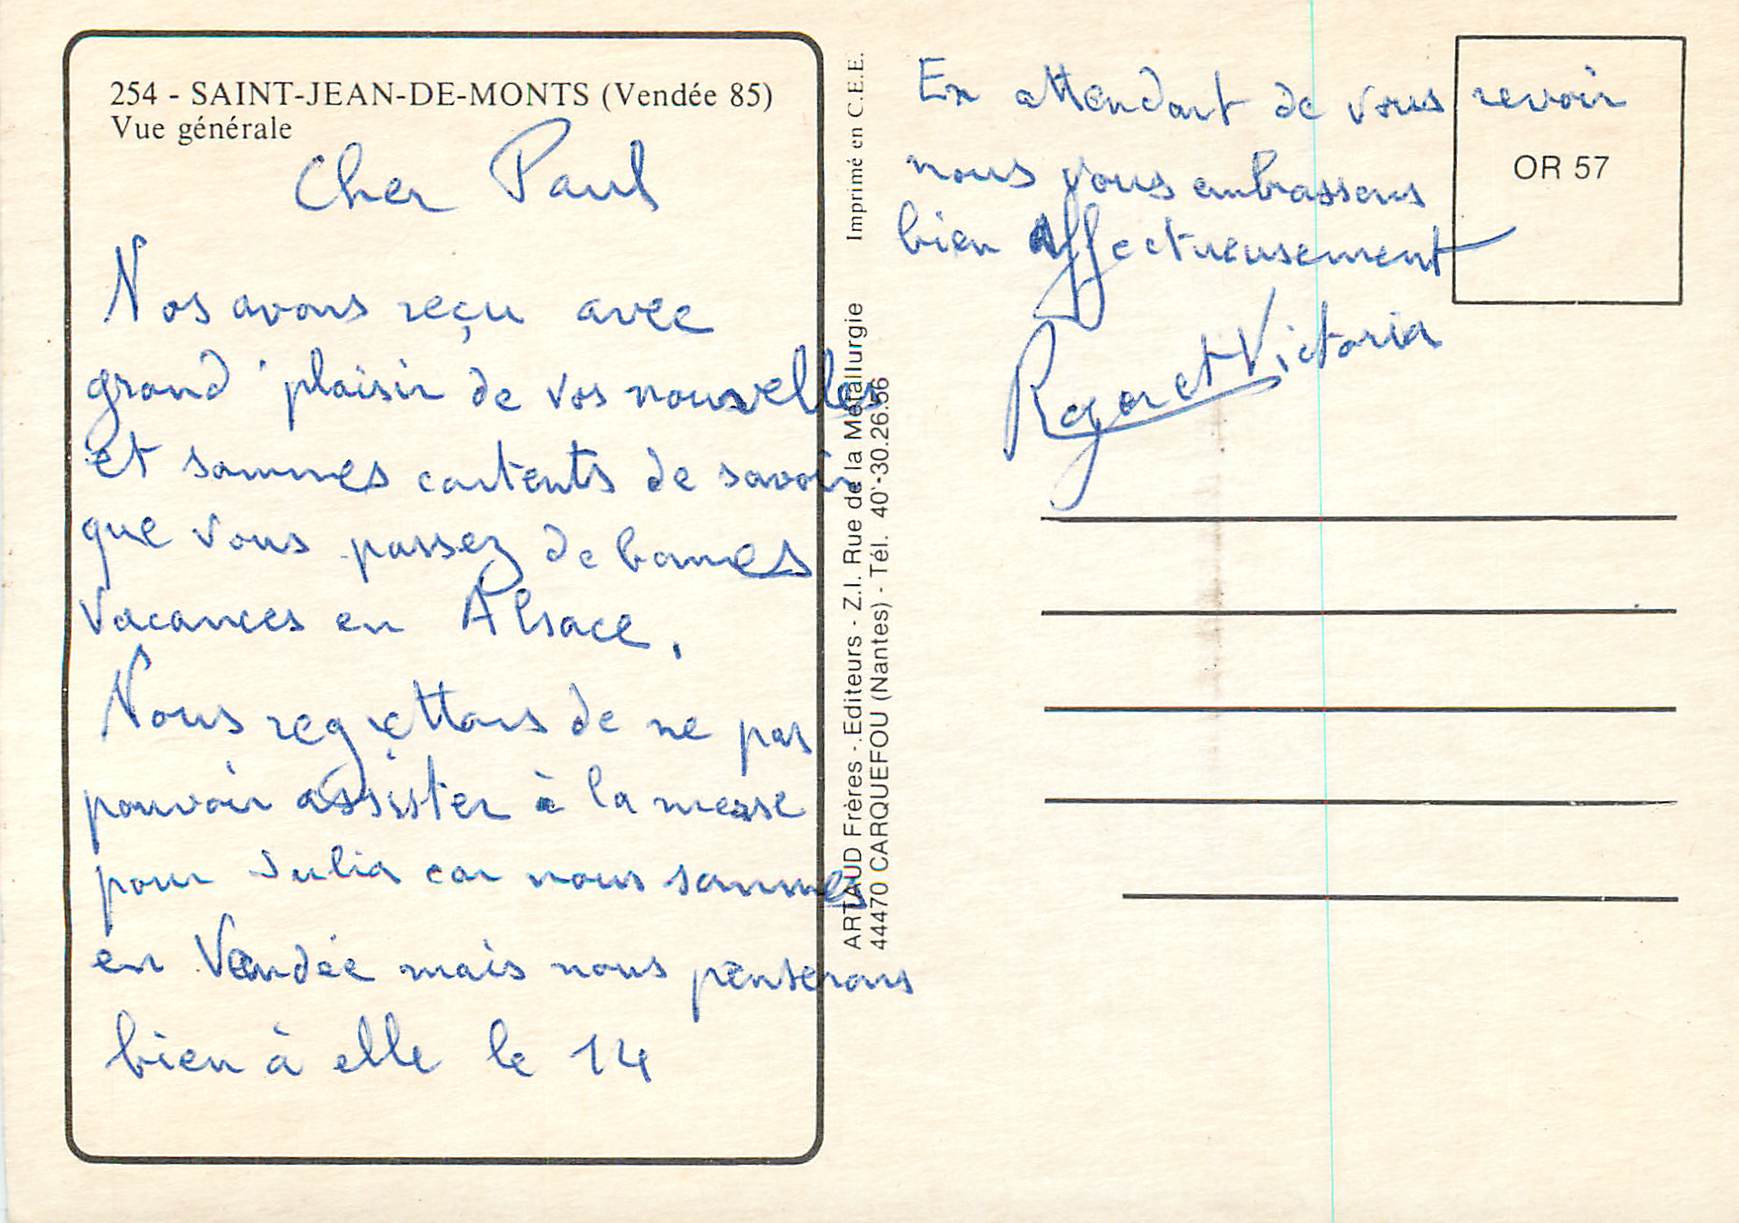 254 - SAINT-JEAN-DE-MONTS (Vendée 85)
Vue générale
Cher Paul
Nos avons reçu avec
grand plaisir de vos nouvelles
et sommes contents de savoir
que vous passez de bonnes
vacances en Alsace.
Nous regrettons de ne pas
pouvoir assister à la messe
pour Julia car nous sommes
en Vendée mais nous penserons
bien à elle le 14
Imprimé en C.E.E.
ARTAUD Frères - Editeurs - Z.I. Rue de la Métallurgie
44470 CARQUEFOU (Nantes) - Tél. 40-30.26.56
En attendant de vous revoir
nous vous embrassons
bien affectueusement
Roger et Victoria
OR 57